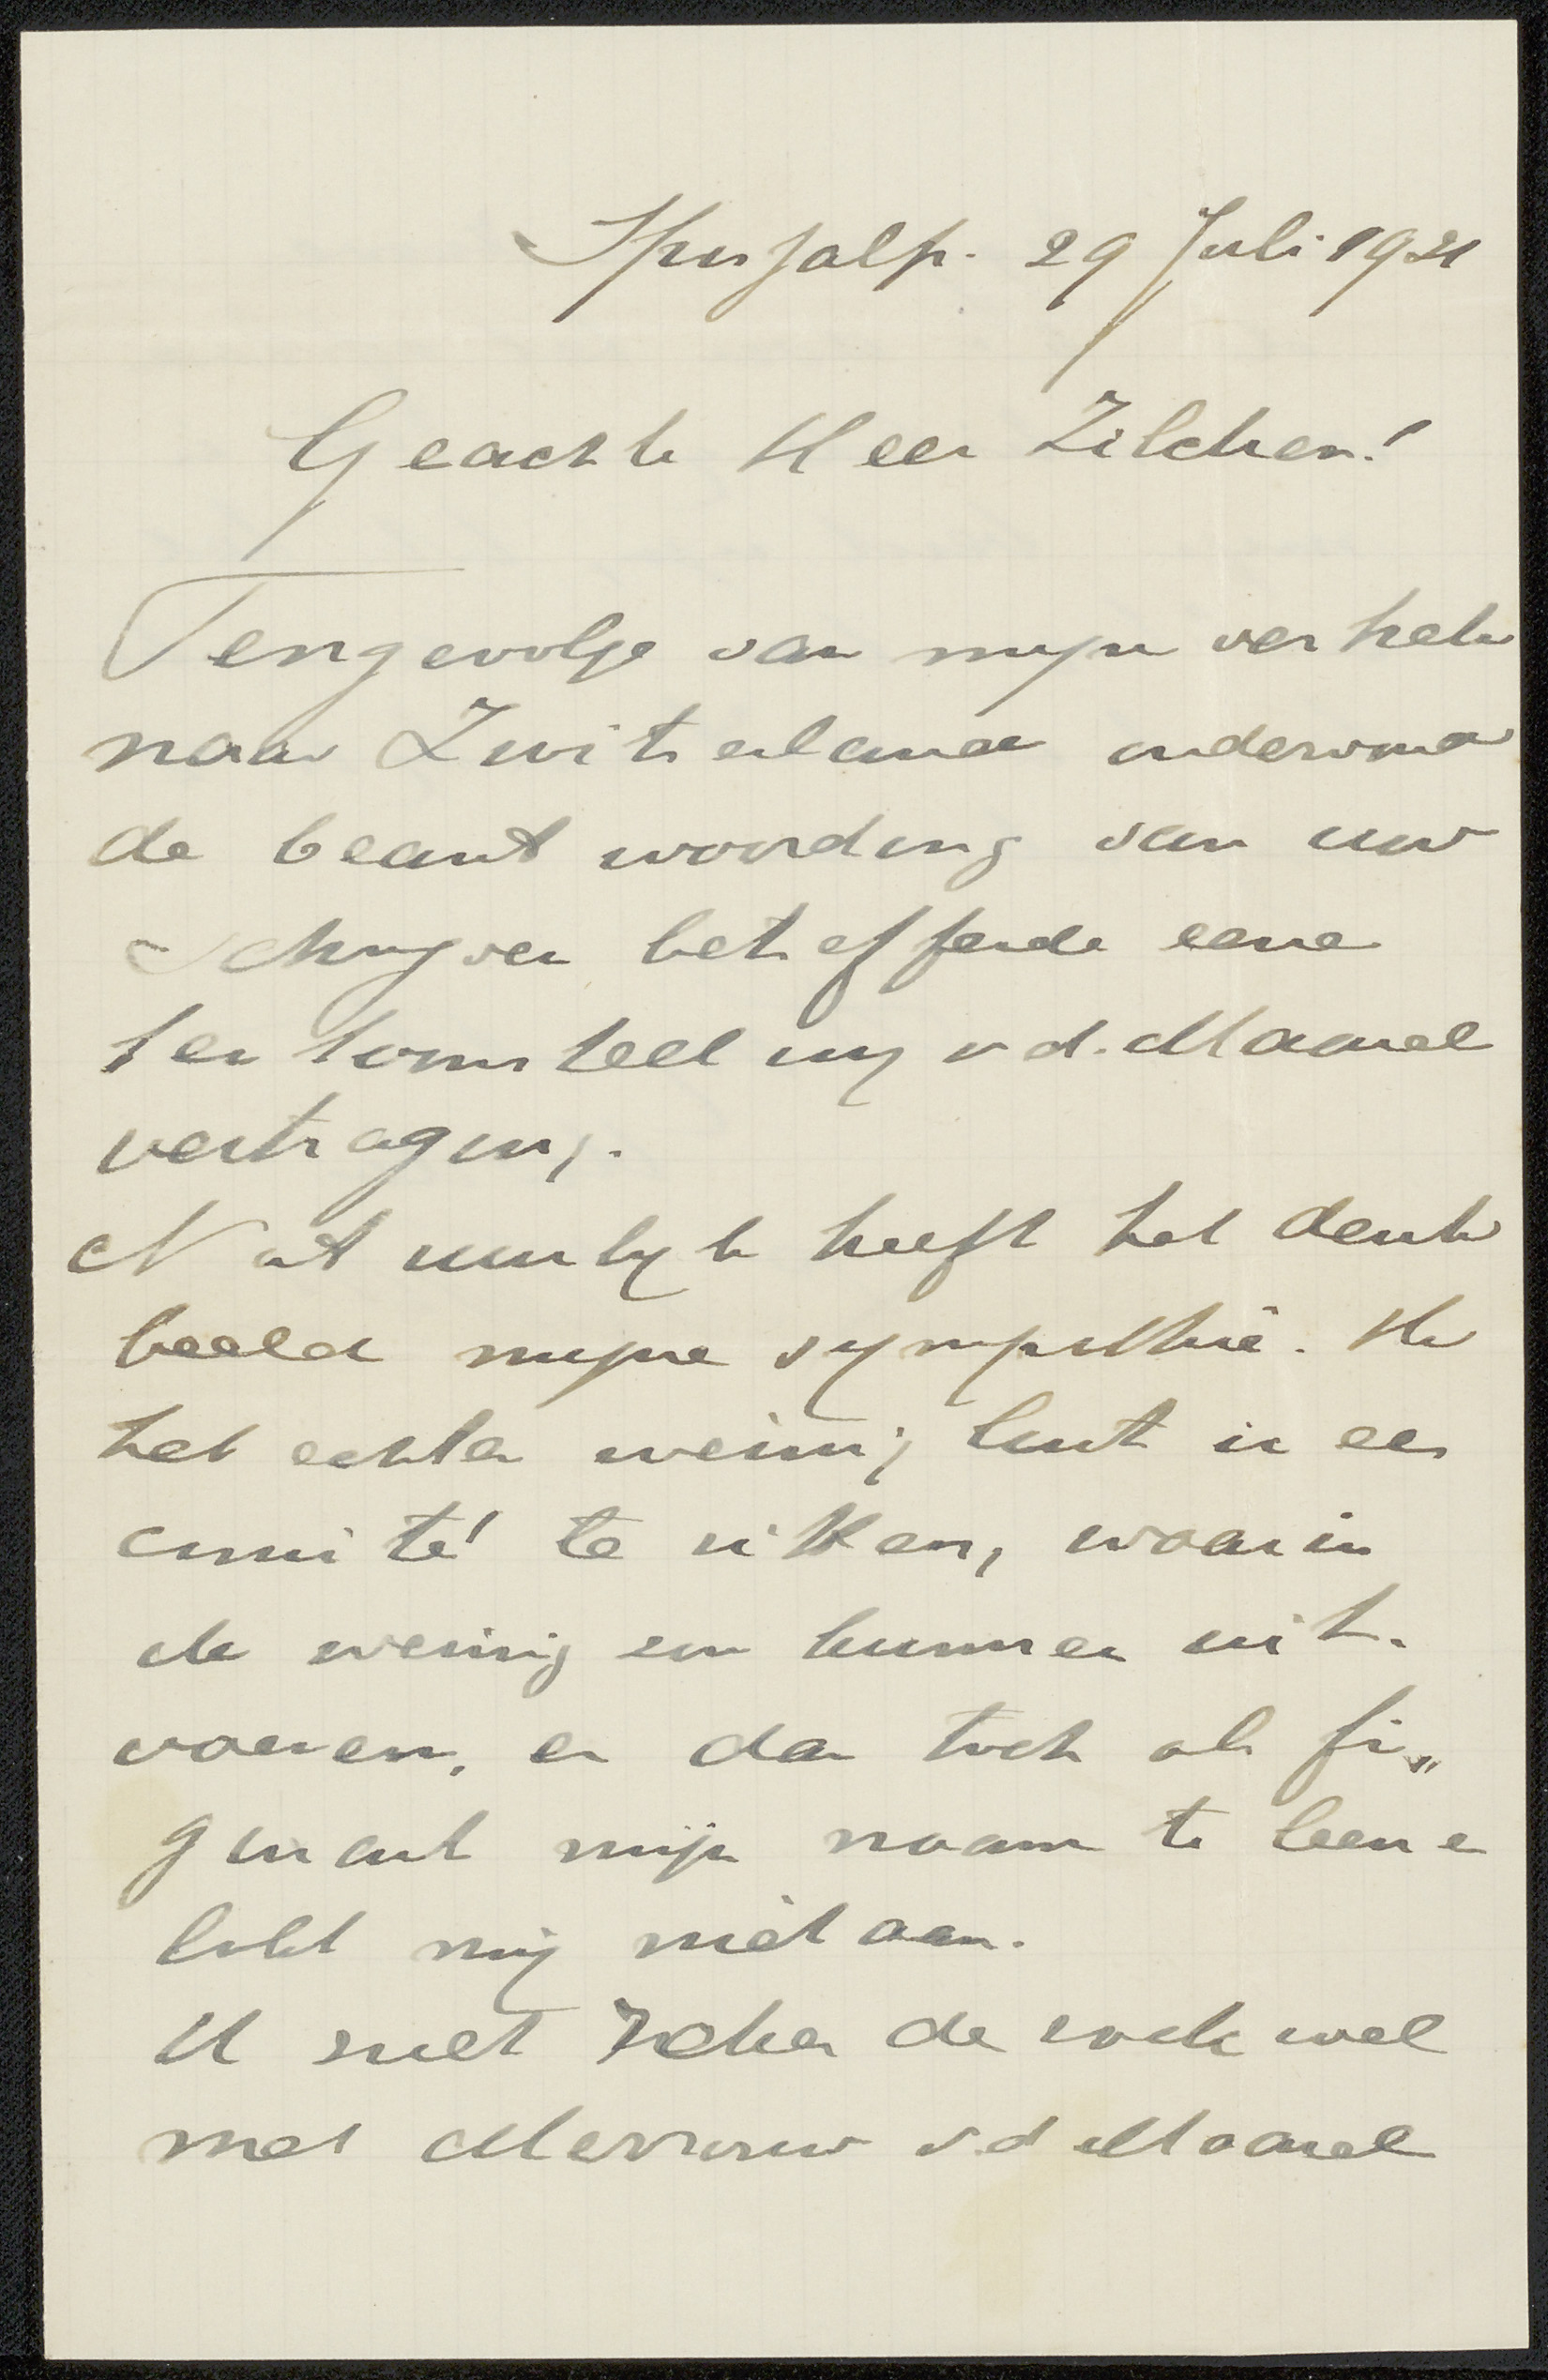 29 Juli 1921
Geachte Heer Zilcken!
Tengevolge van mijn vertrek
naar Zwitserland ondervond
de beantwoording van uw
schrijven betreffende eene
tentoonstelling v d. Maarel
vertraging.
Natuurlijk heeft het denk
beeld mijne sympathie. Ik
heb echter weinig lust in een
comité te zitten, waarin
ik weinig zou kunnen uit-
voeren, en dan toch als fi„
gurant mijn naam te leenen
lokt mij niet aan.
U zult zeker de zaak wel
met Mevrouw v.d Maarel